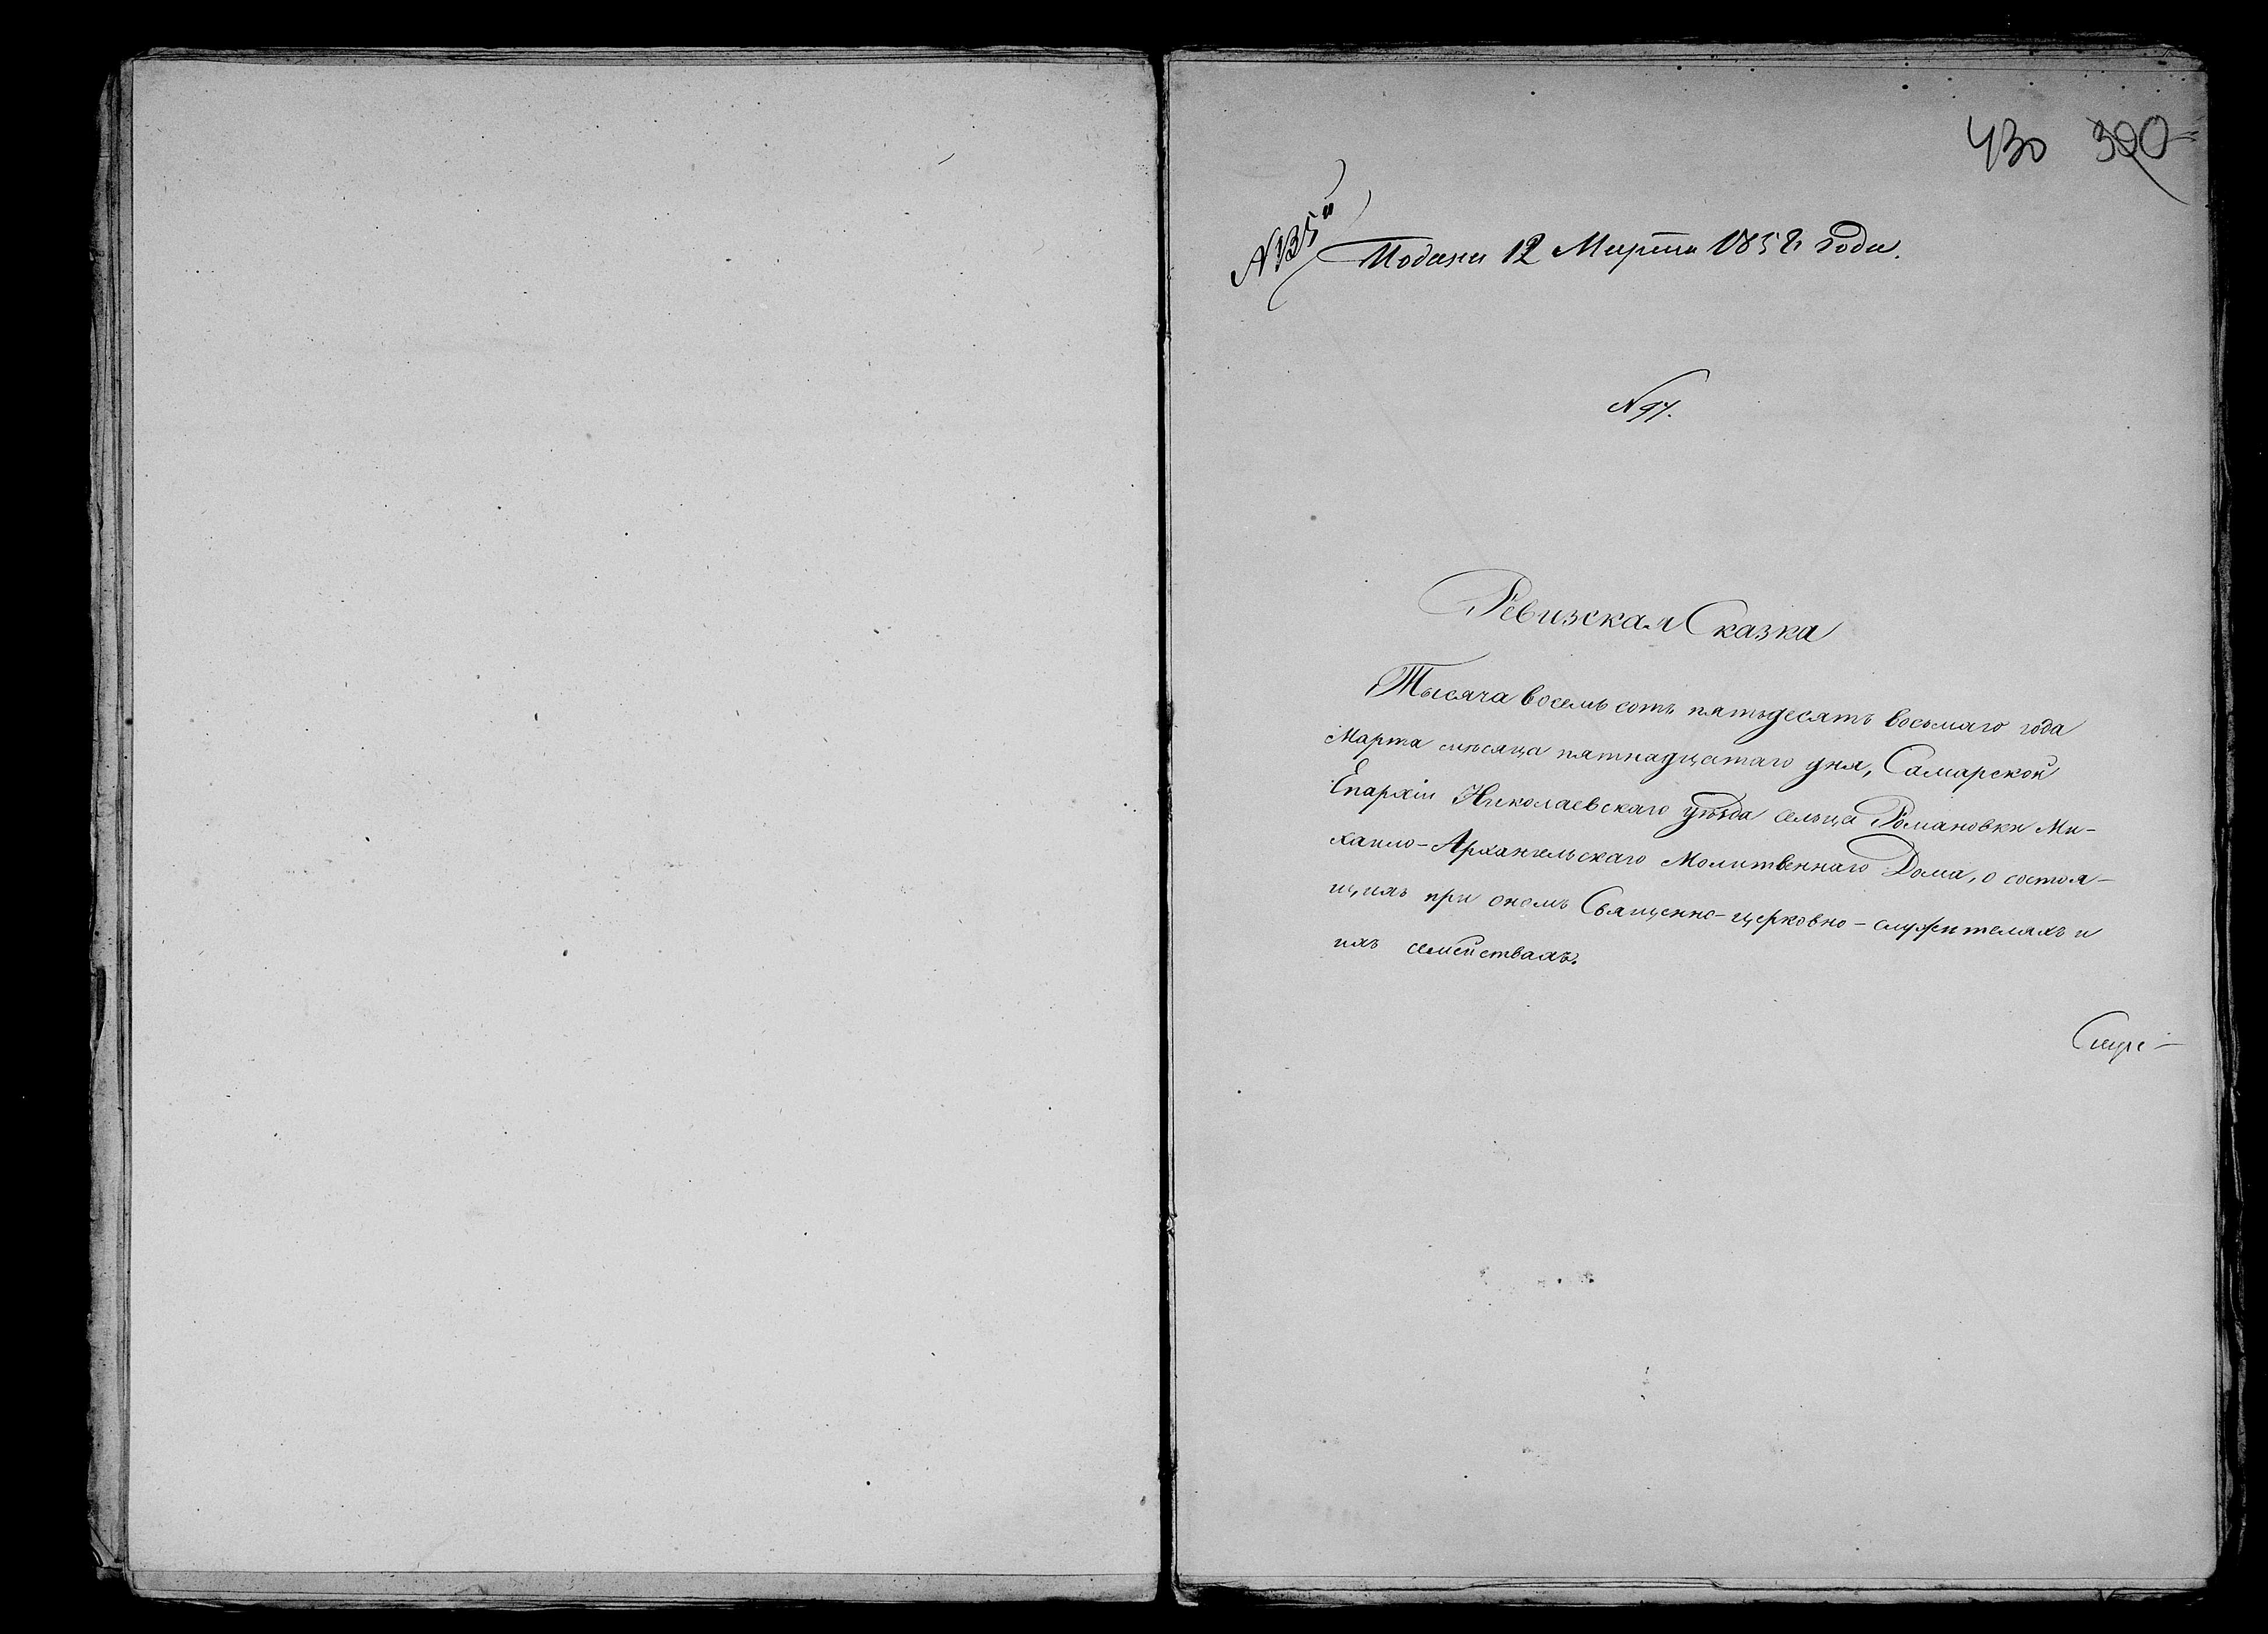 430 390
N 135
Подана 12 Марта 1858 года.
N 97.
Ревизская Сказка
Тысяча восемь сотъ пятьдесятъ восьмаго года
Марта мѣсяца пятнадцатаго дня, Самарской
Епархіи Николаевскаго уѣзда сельца Романовки Ми-
хаило-Архангельскаго Молитвеннаго Дома, о состоя-
щихъ при ономъ Священно-церковно-служителяхъ и
ихъ семействахъ.